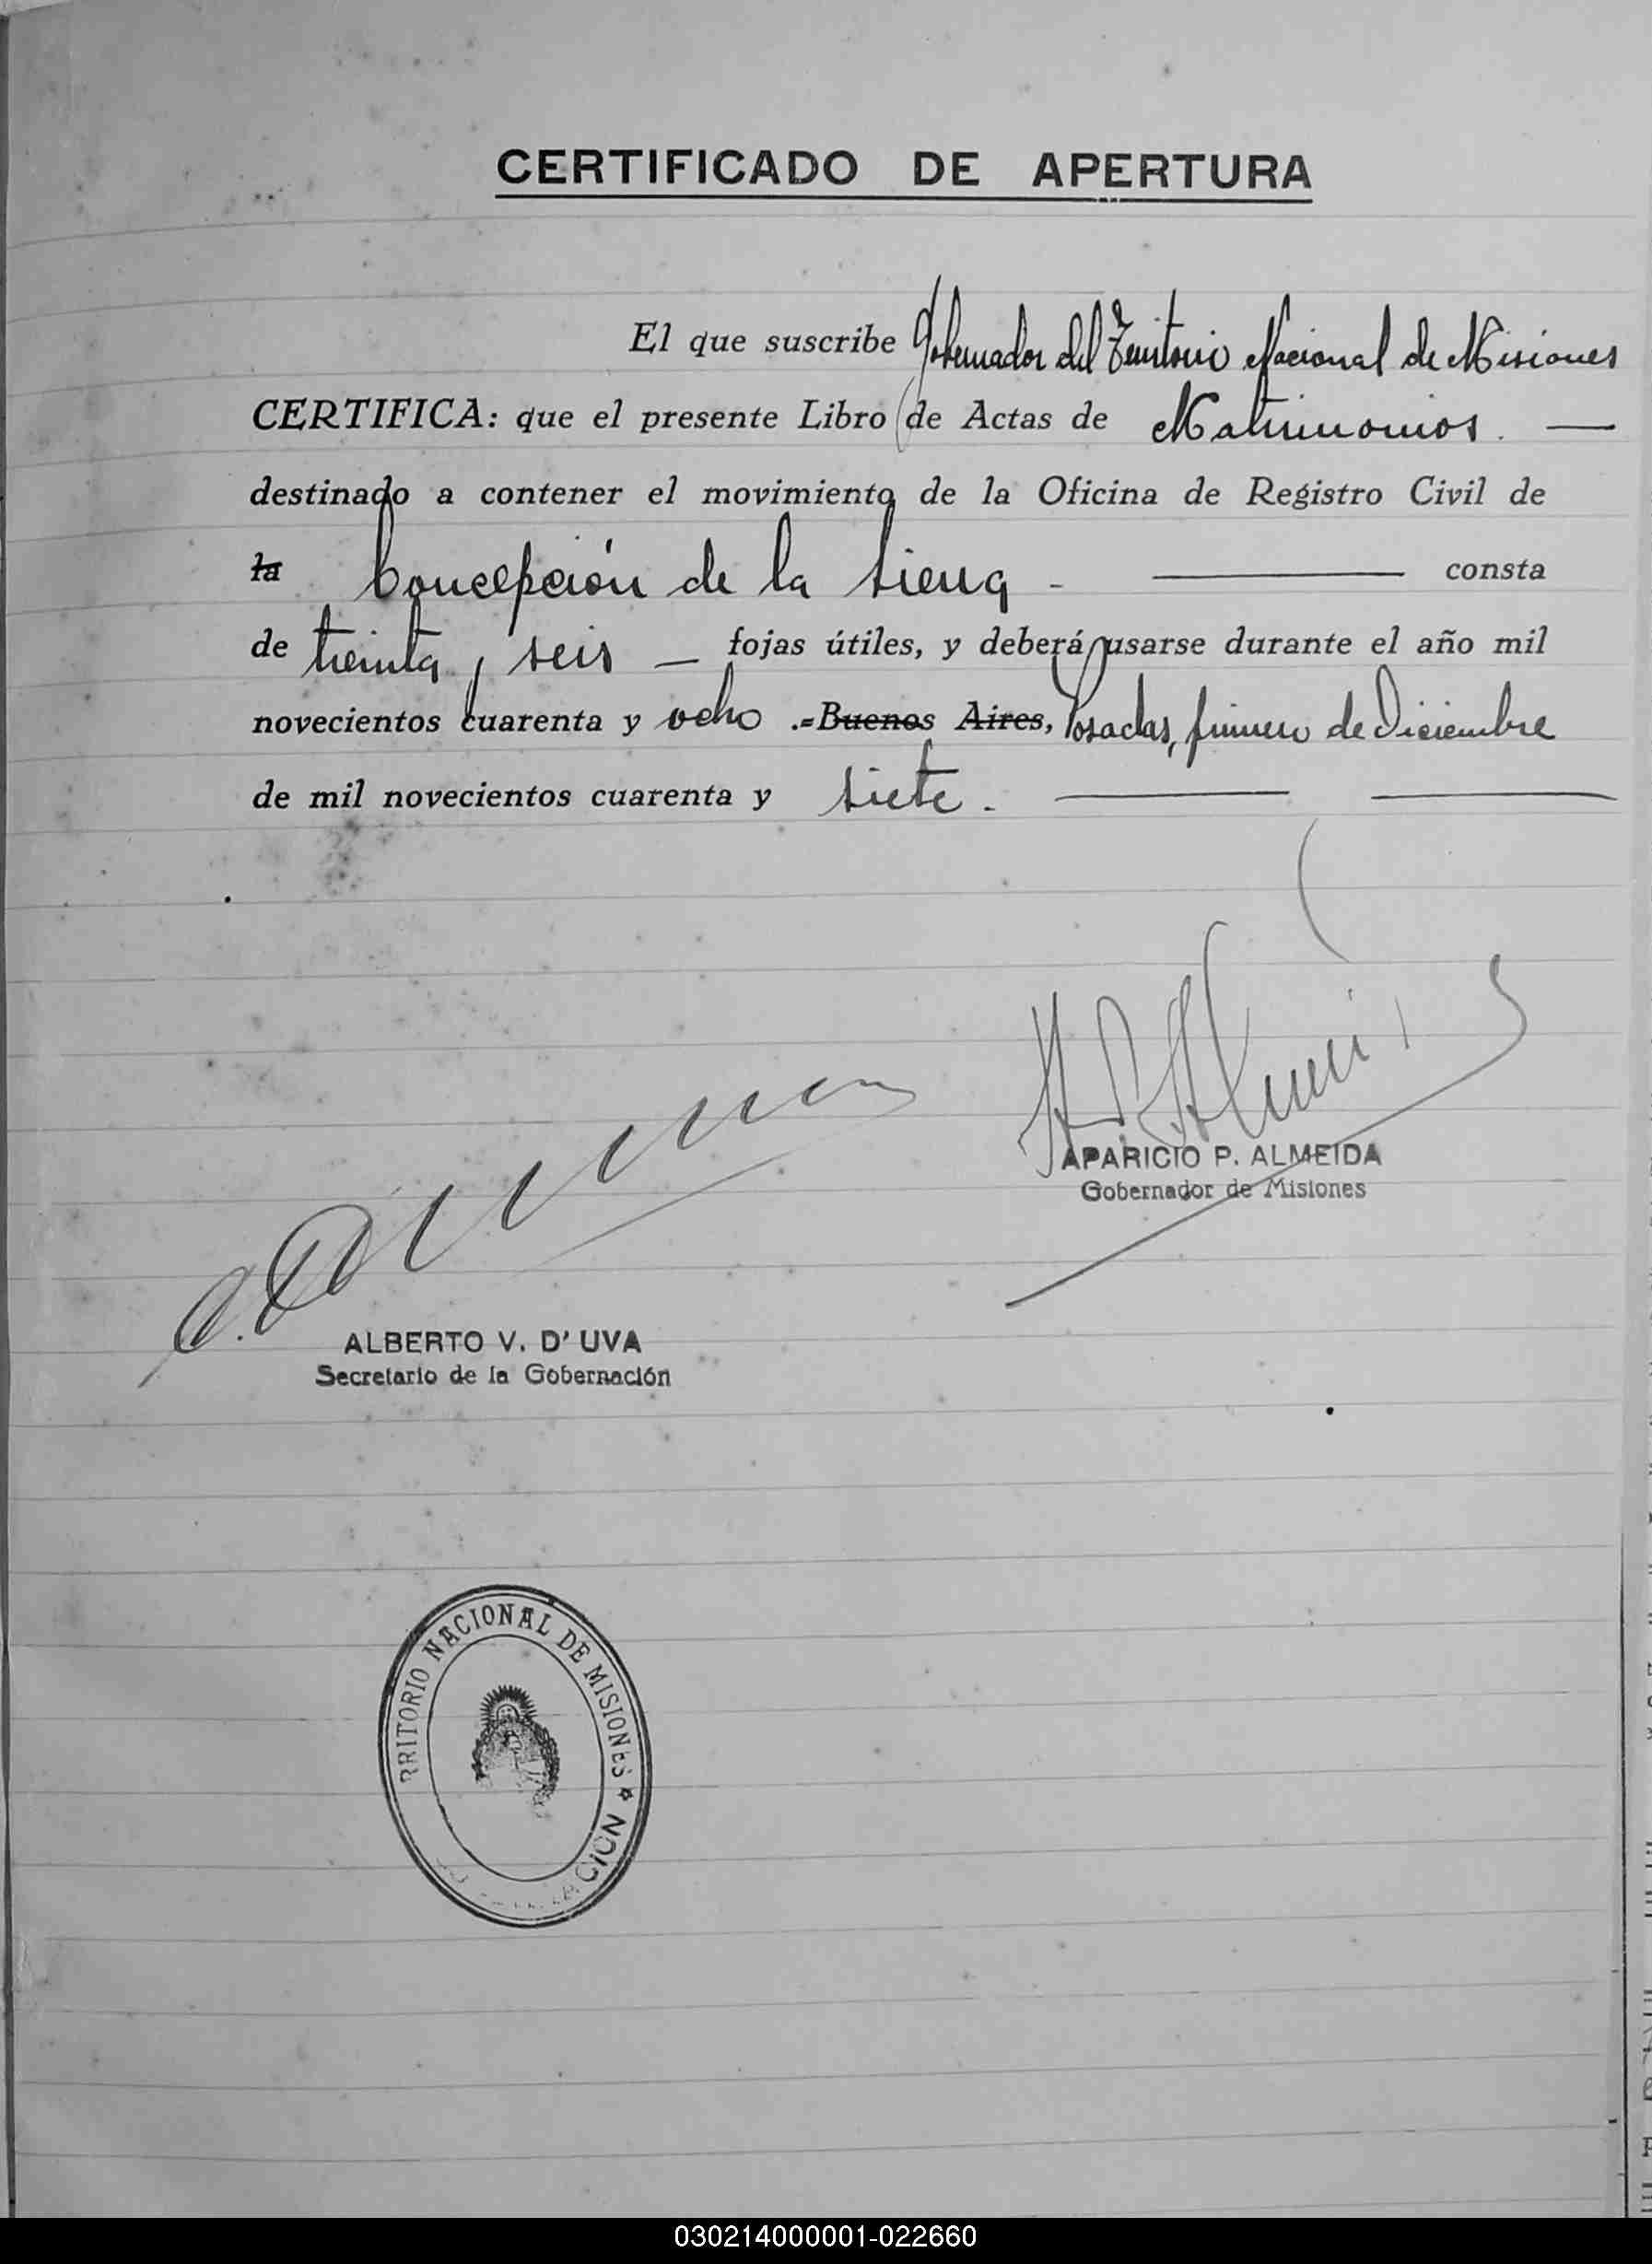 CERTIFICADO DE APERTURA
El que suscribe Gobernador del Territorio Nacional de Misiones
CERTIFICA: que el presente Libro de Actas de Matrimonios. —
destinado a contener el movimiento de la Oficina de Registro Civil de
la Concepción de la Sierra - — consta
de treinta y seis — fojas útiles, y deberá usarse durante el año mil
novecientos cuarenta y ocho .=Buenos Aires, Posadas, primero de Diciembre
de mil novecientos cuarenta y siete. — —
APARICIO P. ALMEIDA
Gobernador de Misiones
ALBERTO V. D' UVA
Secretario de la Gobernación
RRITORIO NACIONAL DE MISIONES *
CION
030214000001-022660